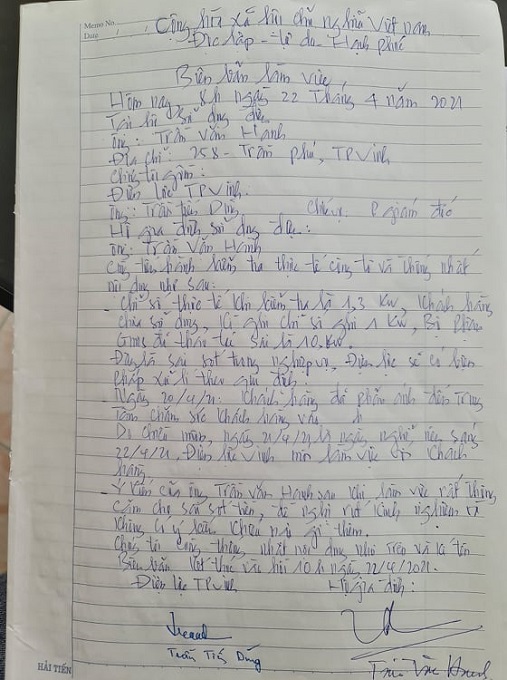 Memo No.
Date / /
Cộng hòa xã hội chủ nghĩa Việt nam
Độc lập - tự do - Hạnh phúc
Biên bản làm việc
Hôm nay, 8h ngày 22 Tháng 4 năm 2021
Tại hộ sử dụng điện
Ông: Trần Văn Hanh
Địa chỉ: 258 - Trần phú, TP Vinh
Chúng tôi gồm:
Điện lực TP Vinh.
Ông: Trần Tiến Dũng chức vụ P giám đốc
Hộ gia đình sử dụng điện:
Ông: Trần Văn Hanh
Cùng tiến hành kiểm tra thực tế công tơ và thống nhất
nội dung như sau:
Chỉ số thực tế khi kiểm tra là 1,3 Kw, Khách hàng
chưa sử dụng, kì ghi chỉ số ghi 1 Kw, Bộ phận
đã thao tác sai là 10 Kw.
Đây là sai sót trong nghiệp vụ. Điện lực sẽ có biện
pháp xử lí theo qui định.
Ngày 20/4/21: Khách hàng đã phản ánh đến Trung
Tâm chăm sóc khách hàng
Do chiều muộn, ngày 21/4/21 là ngày nghỉ nên sáng
22/4/21, Điện lực Vinh mới làm việc với Khách
hàng.
Ý Kiến của ông Trần Văn Hanh sau khi làm việc rất Thông
cảm cho sai sót trên, đề nghị rút kinh nghiệm và
không có ý kiến khiếu nại gì thêm.
Chúng tôi cùng thống nhất nội dung như trên và kí tên
Biên bản kết thúc vào hồi 10h ngày 22/4/2021.
Điện lực TP Vinh Hộ gia đình:
Trần Tiến Dũng Trần Văn Hanh
HẢI TIẾN